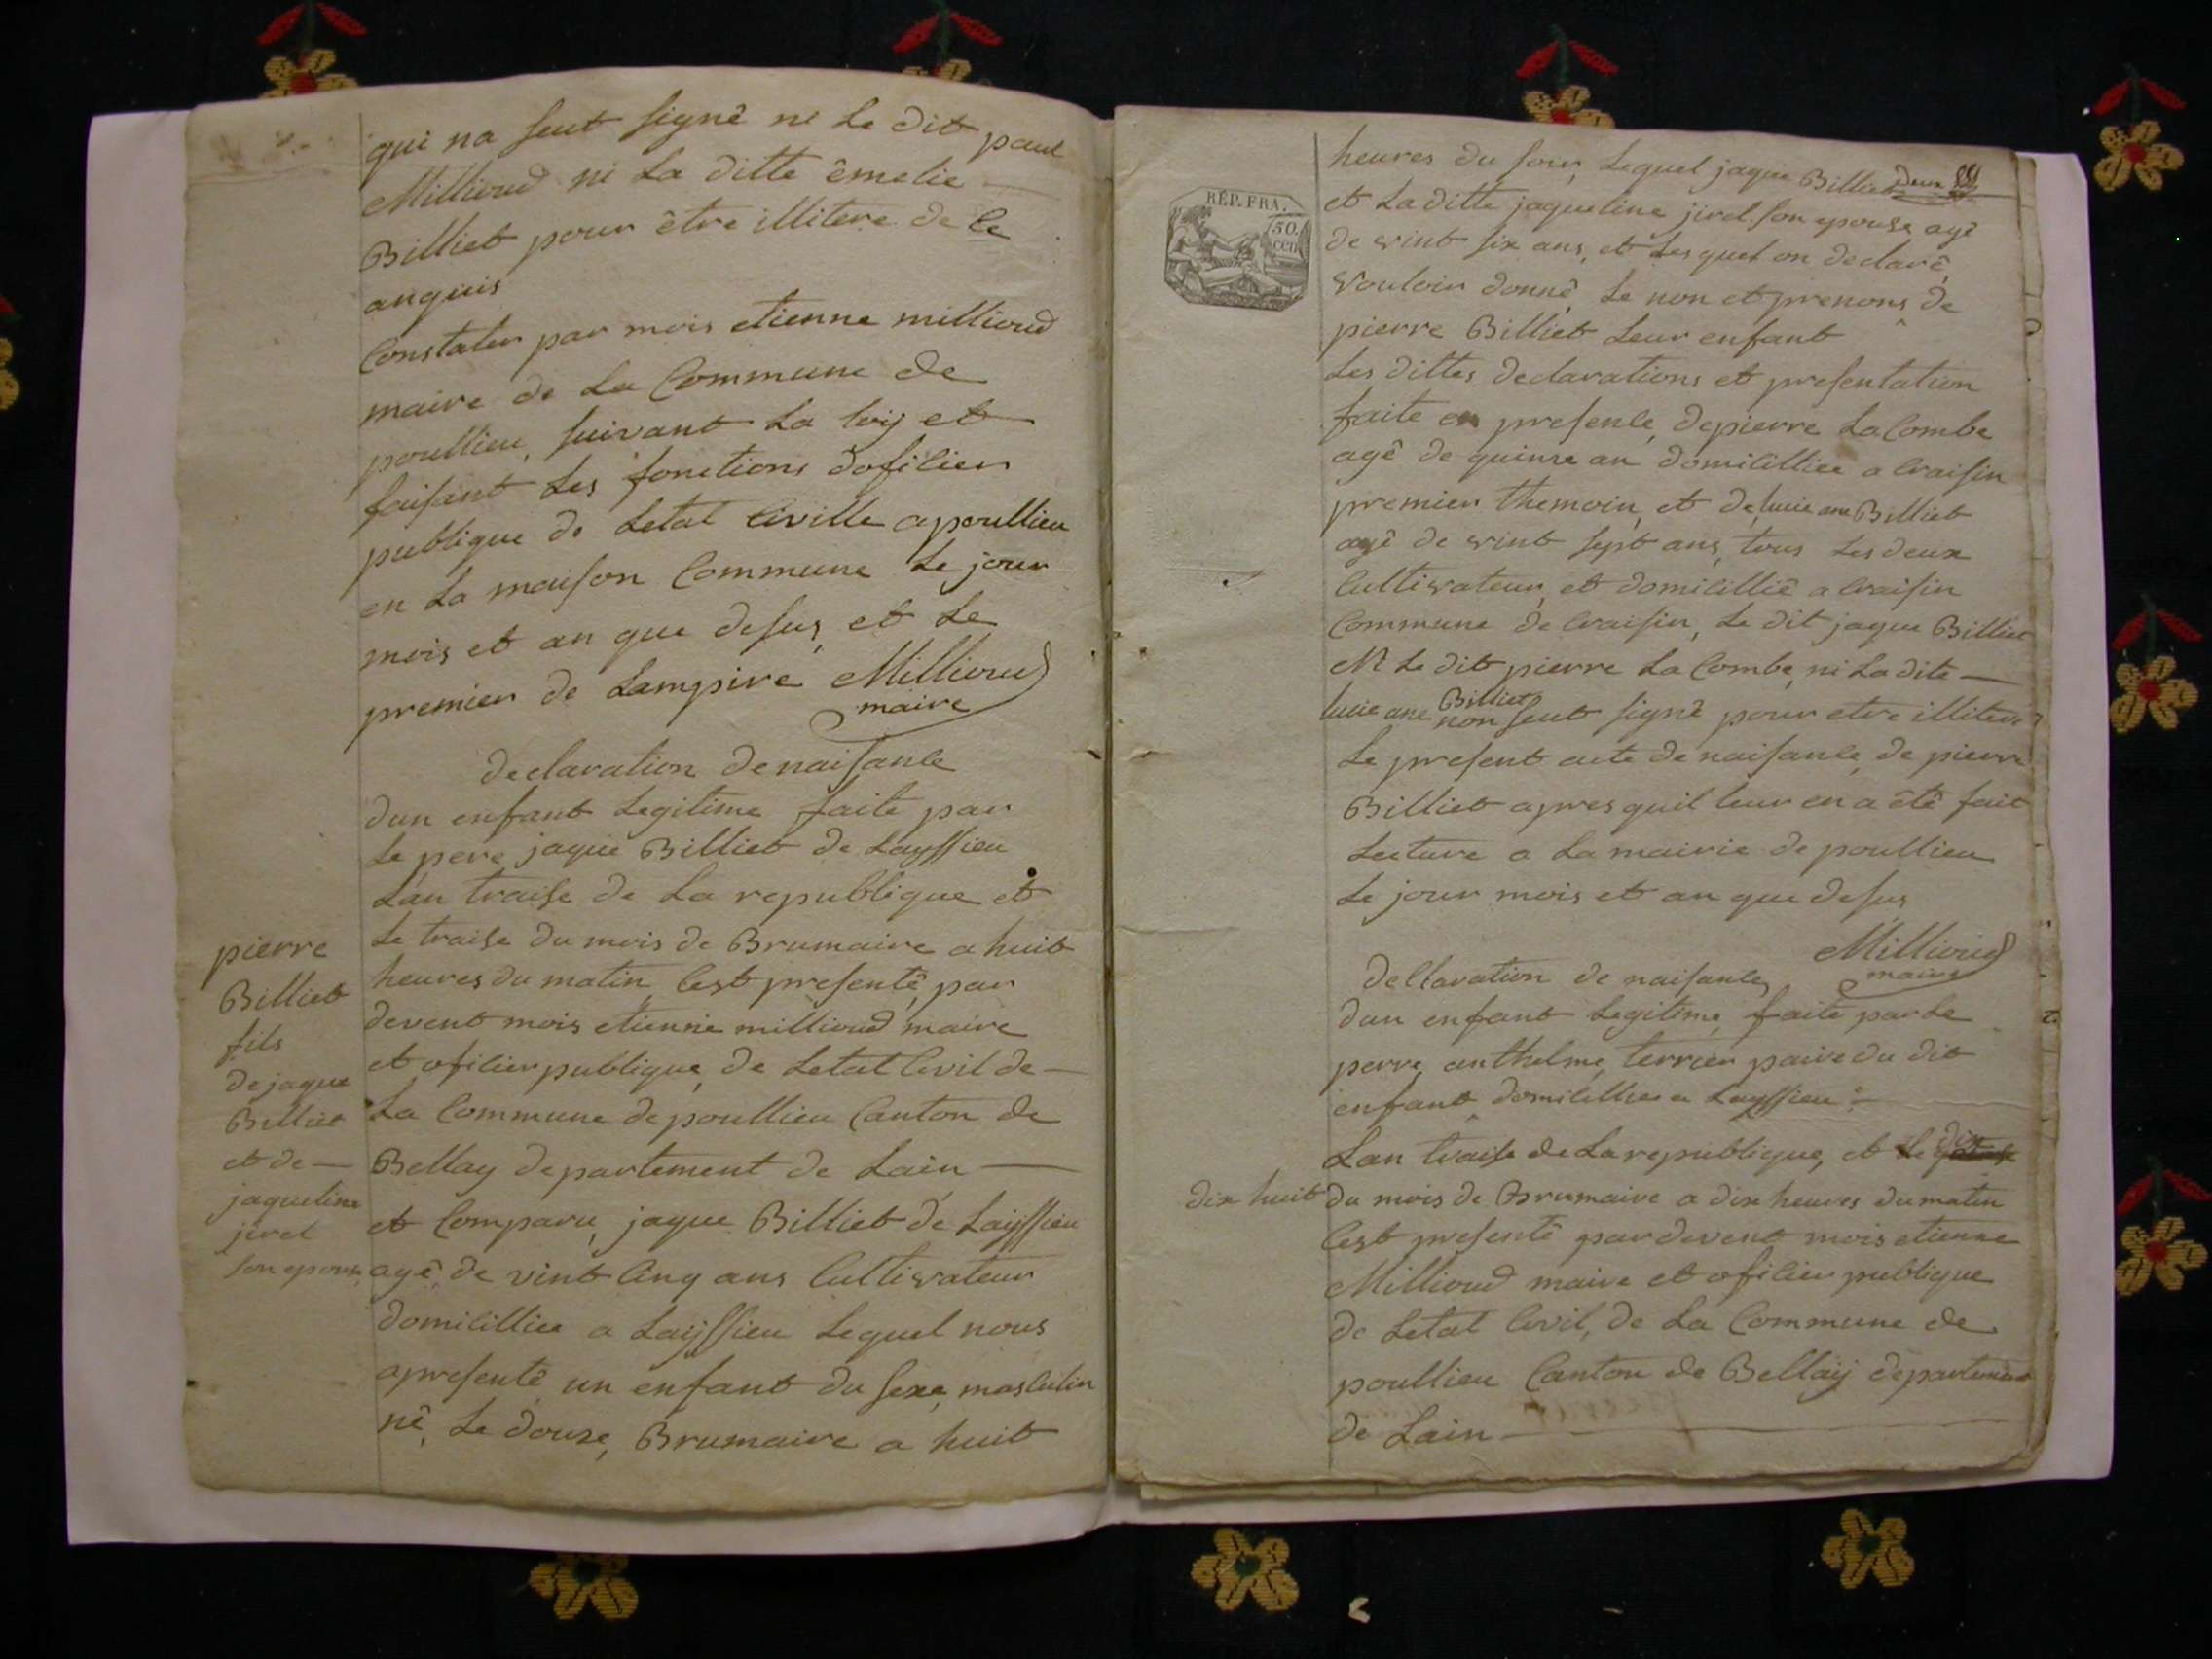 qui na seut signê ni Le dit paul
Millioud ni La ditte êmelie
Billiet pour être illitere de Ce
anquis
Constater par mois etienne millioud
maire de La Commune de
poullieu, suivant La loij et
faisant Les fonctions dofisier
publique de Letat Civille a poullieu
en La maison Commune Le jour
mois et an que desus, et Le
premier de Lampire Millioud
maire
declaration de naisance
dun enfant Legitime faite par
Le pere jaque Billiet de Layssieu
Lan traise de La republique et
Le traise du mois de Brumaire a huit
heures du matin Cest presentê, par
devent mois etienne millioud maire
et ofisier publique, de Letat Civil de
La Commune de poullieu Canton de
Bellay departement de Lain
et Comparu, jaque Billiet de Laijssieu
agê de vint Cinq ans Cultivateur
domicilliee a Laijssieu Lequel nous
a presentê un enfant du sexe, masculin
nê, Le douze, Brumaire a huit
pierre
Billiet
fils
de jaque
Billiet
et de
jaqueline
jirel
son epouse
heures du soir, Lequel jaque Billiet
deux
RÉP. FRA.
50.
cen
et La ditte jaqueline jirel son epouse agê
de vint six ans, et Les quel on declarê,
vouloir donnê, Le non et prenons, de
pierre Billiet Leur enfant
Les dittes declarations et presentation
faite en presence, de pierre La Combe
agê de quinze an domicilliee a Craisin
premier themoin, et de, lucie ane Billiet
agê de vint sept ans, tous Les deux
Cultivateur, et domicilliê a Craisin
Commune de Craisin, Le dit jaque Billiet
Ni Le dit pierre La Combe, ni La dite
lucie ane Billiet non seut signê pour etre illitere
Le present acte de naisance, de pierre
Billiet apres quil leur en a êtê fait
Lecture a La mairie de poullieu
Le jour mois et an que desus
Millioud
maire
declaration de naisance,
dun enfant Legitime, faite par Le
perre, anthelme terrier paire du dit
enfant, domicilliee a Layssieu
Lan traise de La republique, et Le dix
dix huit
du mois de Brumaire a dix heures du matin
Cest presentê par devent mois etienne
Millioud maire et ofisier publique
de Letat Civil, de La Commune de
poullieu Canton de Bellaij departement
de Lain